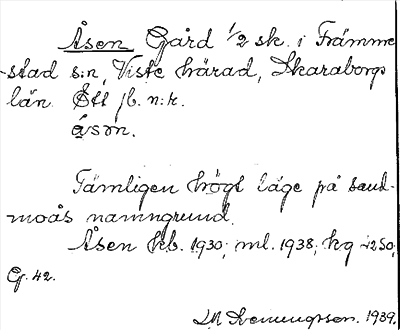 Åsen Gård 1/2 sk. i Främme
-stad s:n, Viste härad, Skaraborgs
län. Ett jb. n:r.
åsɔn.
Tämligen högt läge på sand-
moås namngrund.
Åsen kb. 1930; ml. 1938; kg 1250;
Gj. 42.
1939.